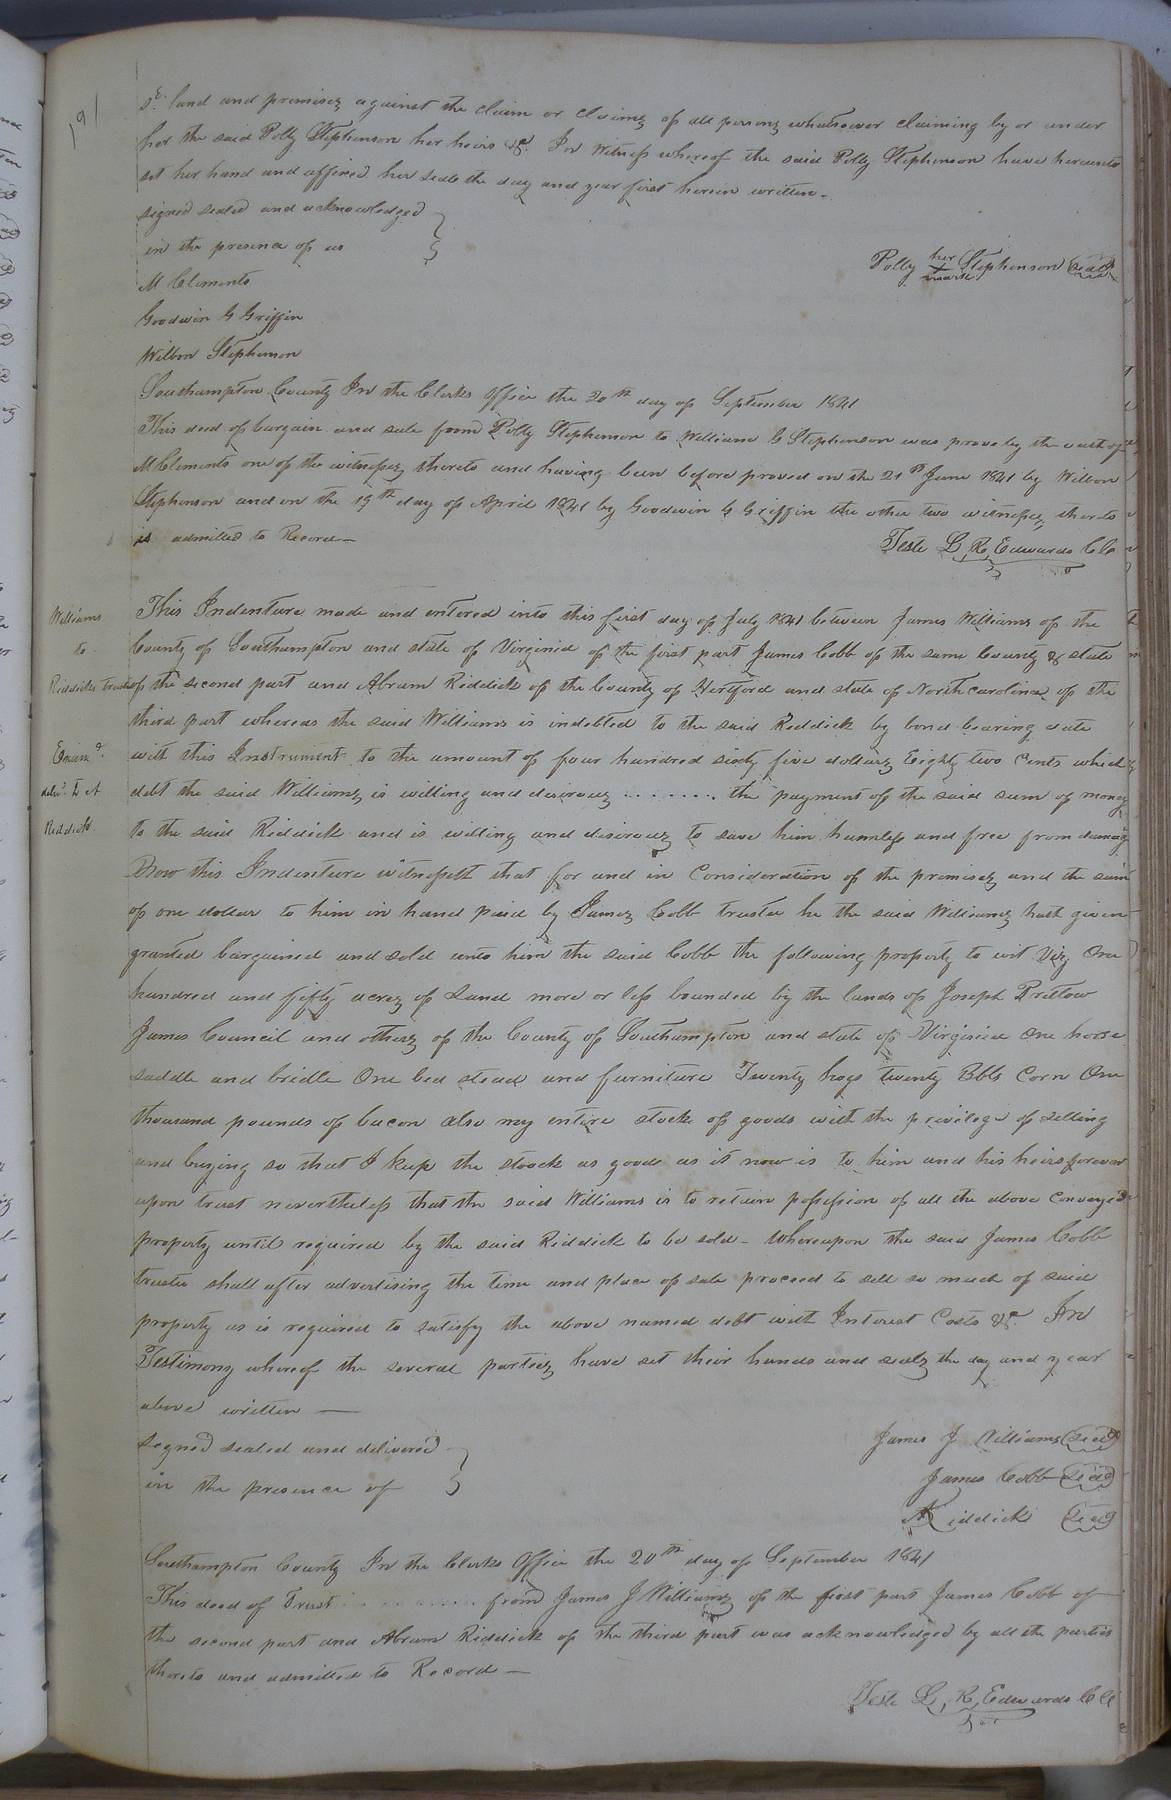 191
sd. land and premises against the claim or claims of all persons whatsoever claiming by or under
her the said Polly Stephenson her heirs &c. In Witness whereof the said Polly Stephenson have hereunto
set her hand and affixed her seal the day and year first herein written.
signed sealed and acknowledged
in the presence of us
Polly her X mark Stephenson Seal
M Clements
Goodwin G Griffin
Wilbon Stephenson
Southampton County In the Clerks Office the 20th day of September 1841
This deed of bargain and sale from Polly Stephenson to William G Stephenson was prove by the oath of
M Clements one of the witnesses thereto and having been before proved on the 21st June 1841 by Wilbon
Stephenson and on the 19th day of April 1841 by Goodwin G Griffin the other two witnesses thereto
is admitted to Record—
Teste L. R. Edwards CC
Williams
to
Riddicks trustee
Examd.
deld. to A
Riddick
This Indenture made and entered into this first day of July 1841 between James Williams of the
County of Southampton and state of Virginia of the first part James Cobb of the same County & state
of the second part and Abram Riddick of the County of Hertford and state of North carolina of the
third part whereas the said Williams is indebted to the said Riddick by bond bearing date
with this Instrument to the amount of four hundred sixty five dollars Eighty two Cents which
debt the said Williams is willing and desirous ........ the payment of the said sum of money
to the said Riddick and is willing and desirous to save him harmless and free from damage
Now this Indenture witnesseth that for and in Consideration of the premises and the sum
of one dollar to him in hand paid by James Cobb trustee he the said Williams hath given
granted bargained and sold unto him the said Cobb the following property to wit Viz One
hundred and fifty acres of Land more or less bounded by the lands of Joseph Pretlow
James Council and others of the County of Southampton and state of Virginia One horse
saddle and bridle One bed stead and furniture Twenty hogs twenty Bbls Corn One
thousand pounds of bacon also my entire stock of goods with the privilege of selling
and buying so that I keep the stock as good as it now is to him and his heirs forever
upon trust nevertheless that the said Williams is to retain possession of all the above Conveyed
property until required by the said Riddick to be sold - Whereupon the said James Cobb
trustee shall after advertising the time and place of sale proceed to sell so much of said
property as is required to satisfy the above named debt with Interest Costs &c. In
Testimony whereof the several parties have set their hands and seals the day and year
above written —
Signed sealed and delivered
in the presence of
James J Williams Seal
James Cobb Seal
A Riddick Seal
Southampton County In the Clerks Office the 20th day of September 1841
This deed of Trust ........ from James J Williams of the first part James Cobb of
the second part and Abram Riddick of the third part was acknowledged by all the parties
thereto and admitted to Record —
Teste L. R. Edwards CC